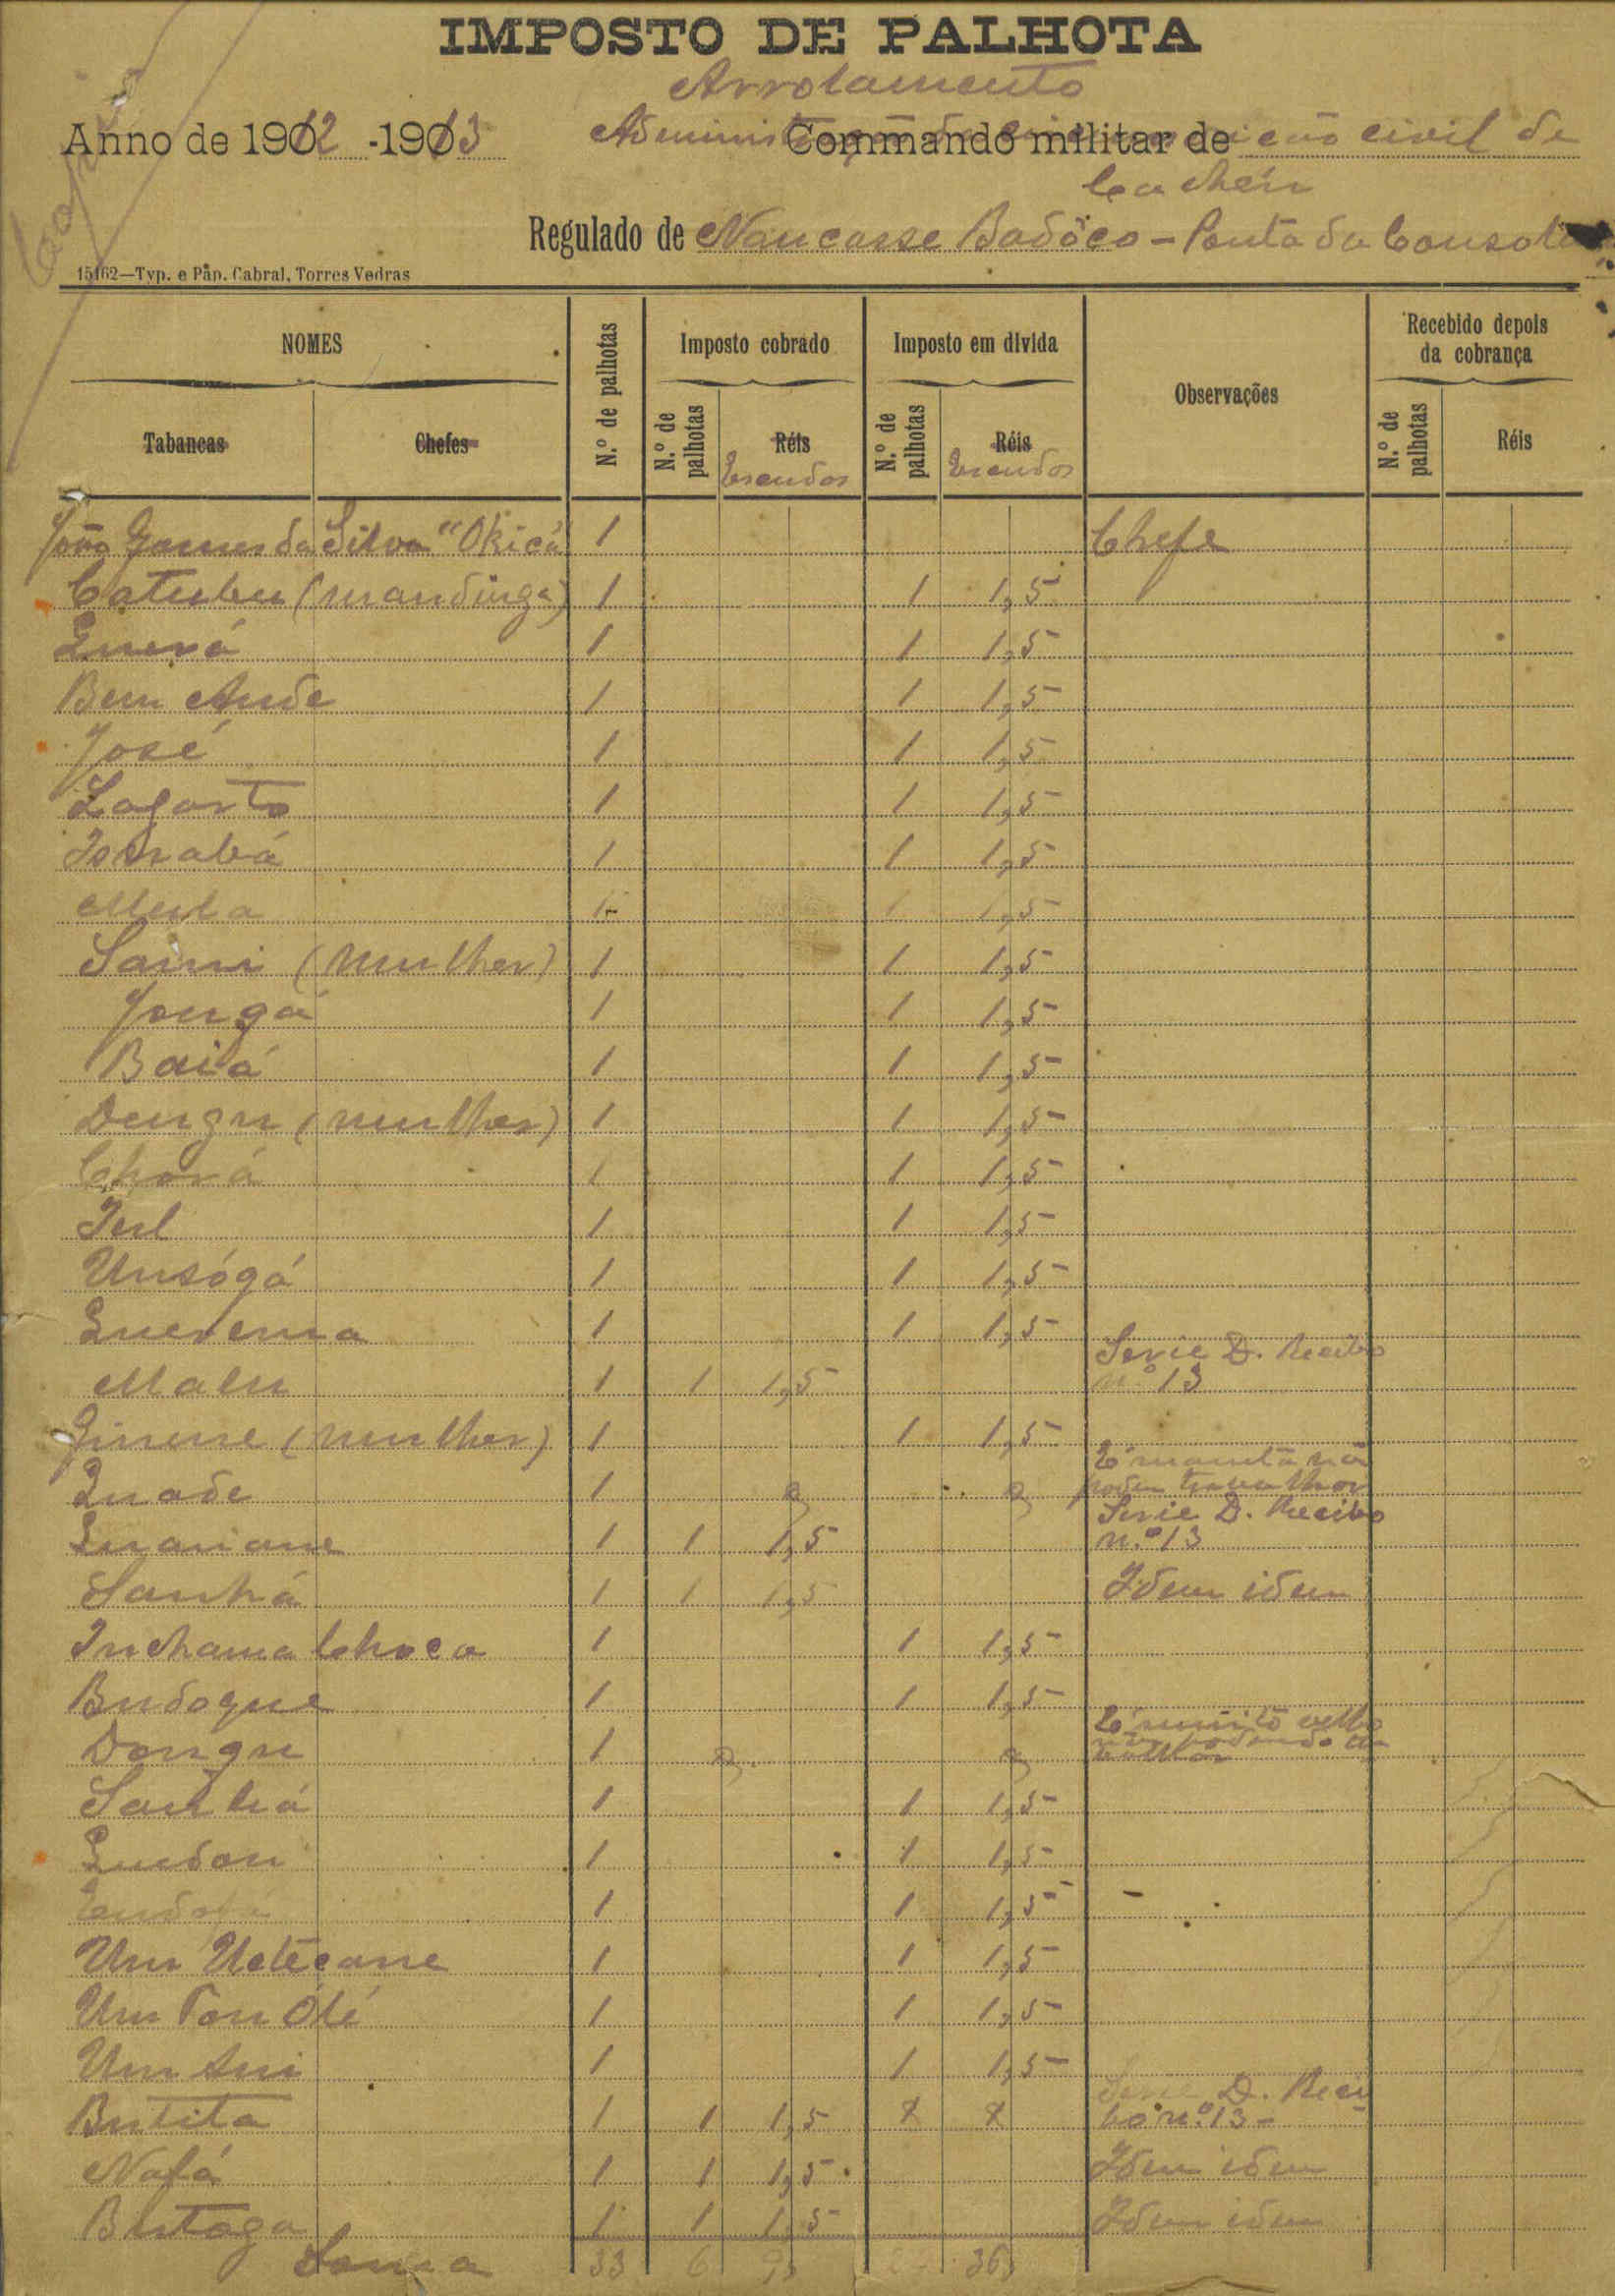 IMPOSTO DE PALHOTA
Arrolamento
Anno de 1912 -1913 Commando militar de civil de
Cacheu
Regulado de Nancasse Badóco - Ponta da Consola
15162—Typ. e Pap. Cabral, Torres Vedras
NOMES N.º de palhotas Imposto cobrado Imposto em divida Observações Recebido depois da cobrança
Tabancas Chefes N.º de palhotas Réis N.º de palhotas Réis N.º de palhotas Réis
Escudos Escudos
João Gomes da Silva "Okicá" 1 Chefe
Catubu (mandinga) 1 1 1,5
1 1 1,5
Bem Ande 1 1 1,5
José 1 1 1,5
Lagarto 1 1 1,5
1 1 1,5
1 1 1,5
Saini (mulher) 1 1 1,5
Jongá 1 1 1,5
Baiá 1 1 1,5
Dengu (mulher) 1 1 1,5
Chorá 1 1 1,5
1 1 1,5
Unsógá 1 1 1,5
Querema 1 1 1,5
Malu 1 1 1,5 Serie D. Recibo
n.º 13
(mulher) 1 1 1,5
Quade 1 É maneta não
poder trabalhar
Quariane 1 1 1,5 Serie D. Recibo
n.º 13
Sanhá 1 1 1,5 Idem idem
Inchama Choca 1 1 1,5
Budoque 1 1 1,5
Dongu 1 É muito velho
não podendo
Sanhá 1 1 1,5
Quedan 1 1 1,5
1 1 1,5
Um Utecane 1 1 1,5
Um Ton Olé 1 1 1,5
Um Sui 1 1 1,5
Butita 1 1 1,5 Serie D. Reci
bo n.º 13 -
Nafá 1 1 1,5 Idem idem
Butaga 1 1 1,5 Idem idem
Soma 33 6 9, 36,